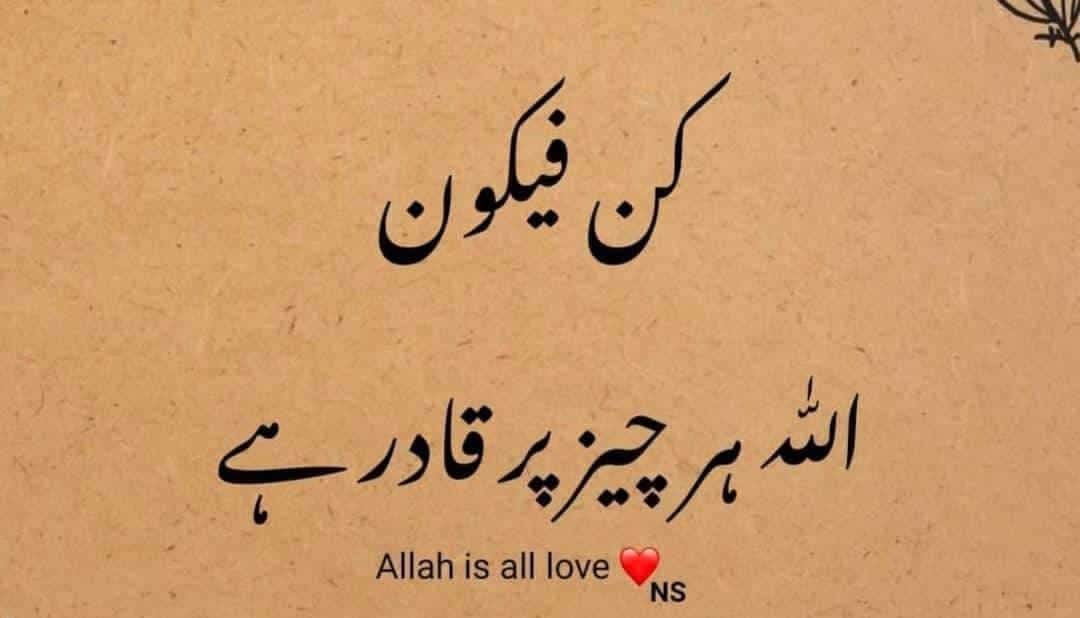 کن فیکون
اللہ ہر چیز پر قادر ہے
Allah is all love ❤️
NS